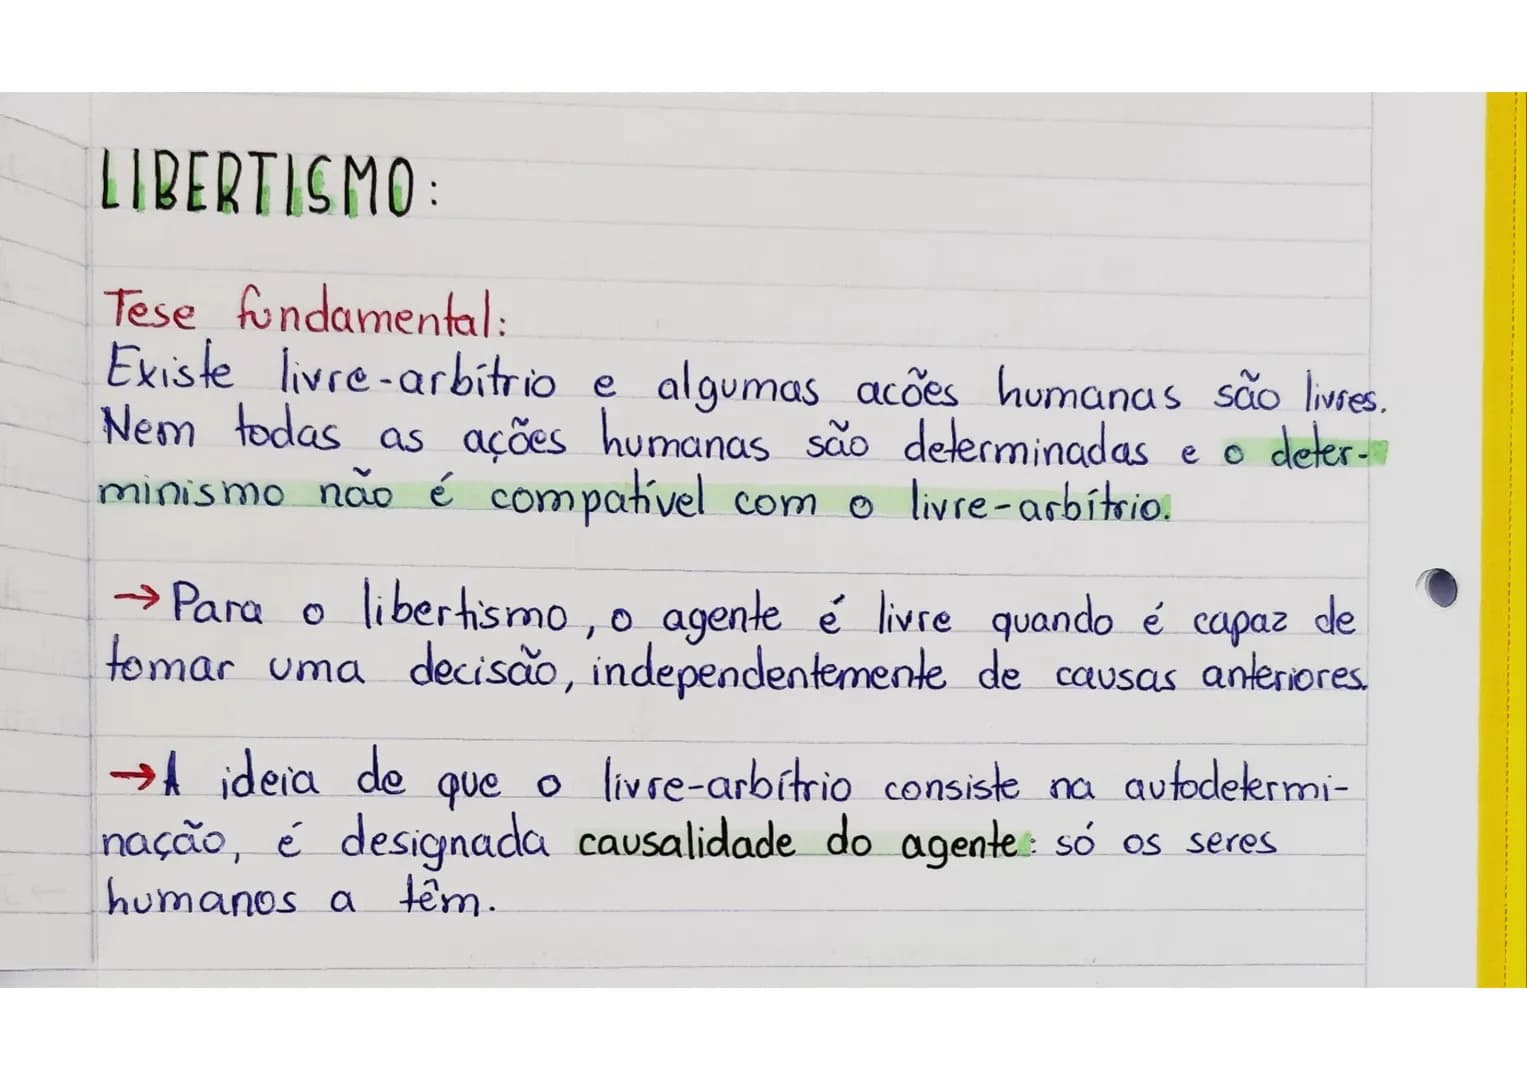 LIBERTISMO:
Tese fundamental:
Existe livre-arbítrio e algumas acões humanas são livres.
Nem todas as ações humanas são determinadas e o deter-
minismo não é compatível com o livre-arbítrio.
→ Para o libertismo, o agente é livre quando é capaz de
tomar uma decisão, independentemente de causas anteriores.
→ A ideia de que o livre-arbítrio consiste na autodetermi-
nação, é designada causalidade do agente: só os seres
humanos a têm.